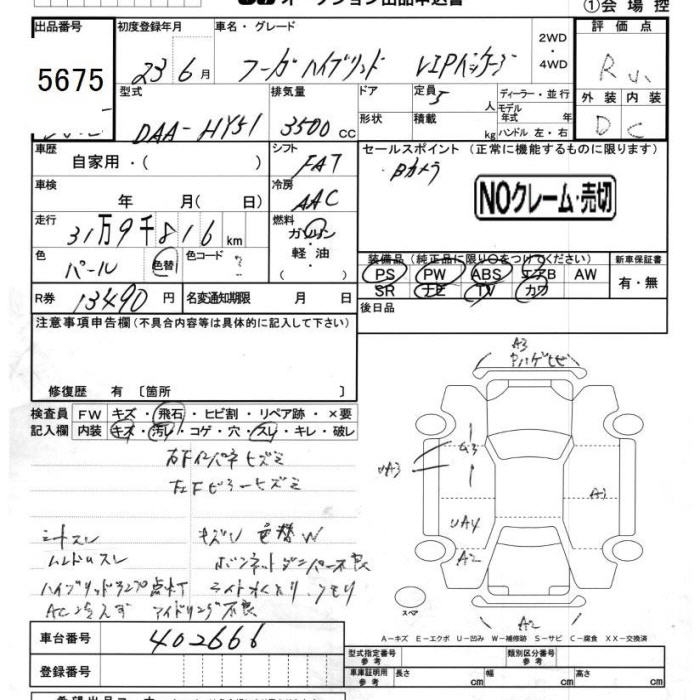 オークション出品申込書 ①会場控
出品番号 初度登録年月 車名・グレード 評価点
5675 23 6月 フーガハイブリッド VIPパッケージ 2WD・4WD R
外装 内装
D C
型式 排気量 ドア 定員 ディーラー・並行
DAA-HY51 3500cc 5人 モデル年式 年
形状 積載 kg ハンドル 左・右
車歴 シフト セールスポイント (正常に機能するものに限ります)
自家用・( ) FAT Bカメラ
車検 冷房
年 月( 日) AAC NOクレーム・売切
走行 燃料
31万9千816km ガソリン・軽油・
色 色替 色コード 装備品 (純正品に限り○をつけてください) 新車保証書
パール ? PS PW ABS エアB AW 有・無
SR ナビ TV カワ
R券 13490円 名変通知期限 月 日 後日品
注意事項申告欄(不具合内容等は具体的に記入して下さい)
修復歴 有 〔箇所 〕
検査員 FW キズ・飛石・ヒビ割・リペア跡・×要
記入欄 内装 キズ・汚レ・コゲ・穴・スレ・キレ・破レ
右Fインパネヒズミ
左Fピラーヒズミ
シートスレ キズU 色替W
ハンドルスレ ボンネットダンパー不良
ハイブリッドランプ点灯 ライトくもり
AC冷えず アイドリング不良
A3
ハゲヒビ
U3
UA3
A3
UA4
A2
スペア
A2
A－キズ E－エクボ U－凹み W－補修跡 S－サビ C－腐食 XX－交換済
車台番号 402666
登録番号
型式指定番号 参考 類別区分番号 参考
車庫証明用 参考 長さ cm 幅 cm 高さ cm